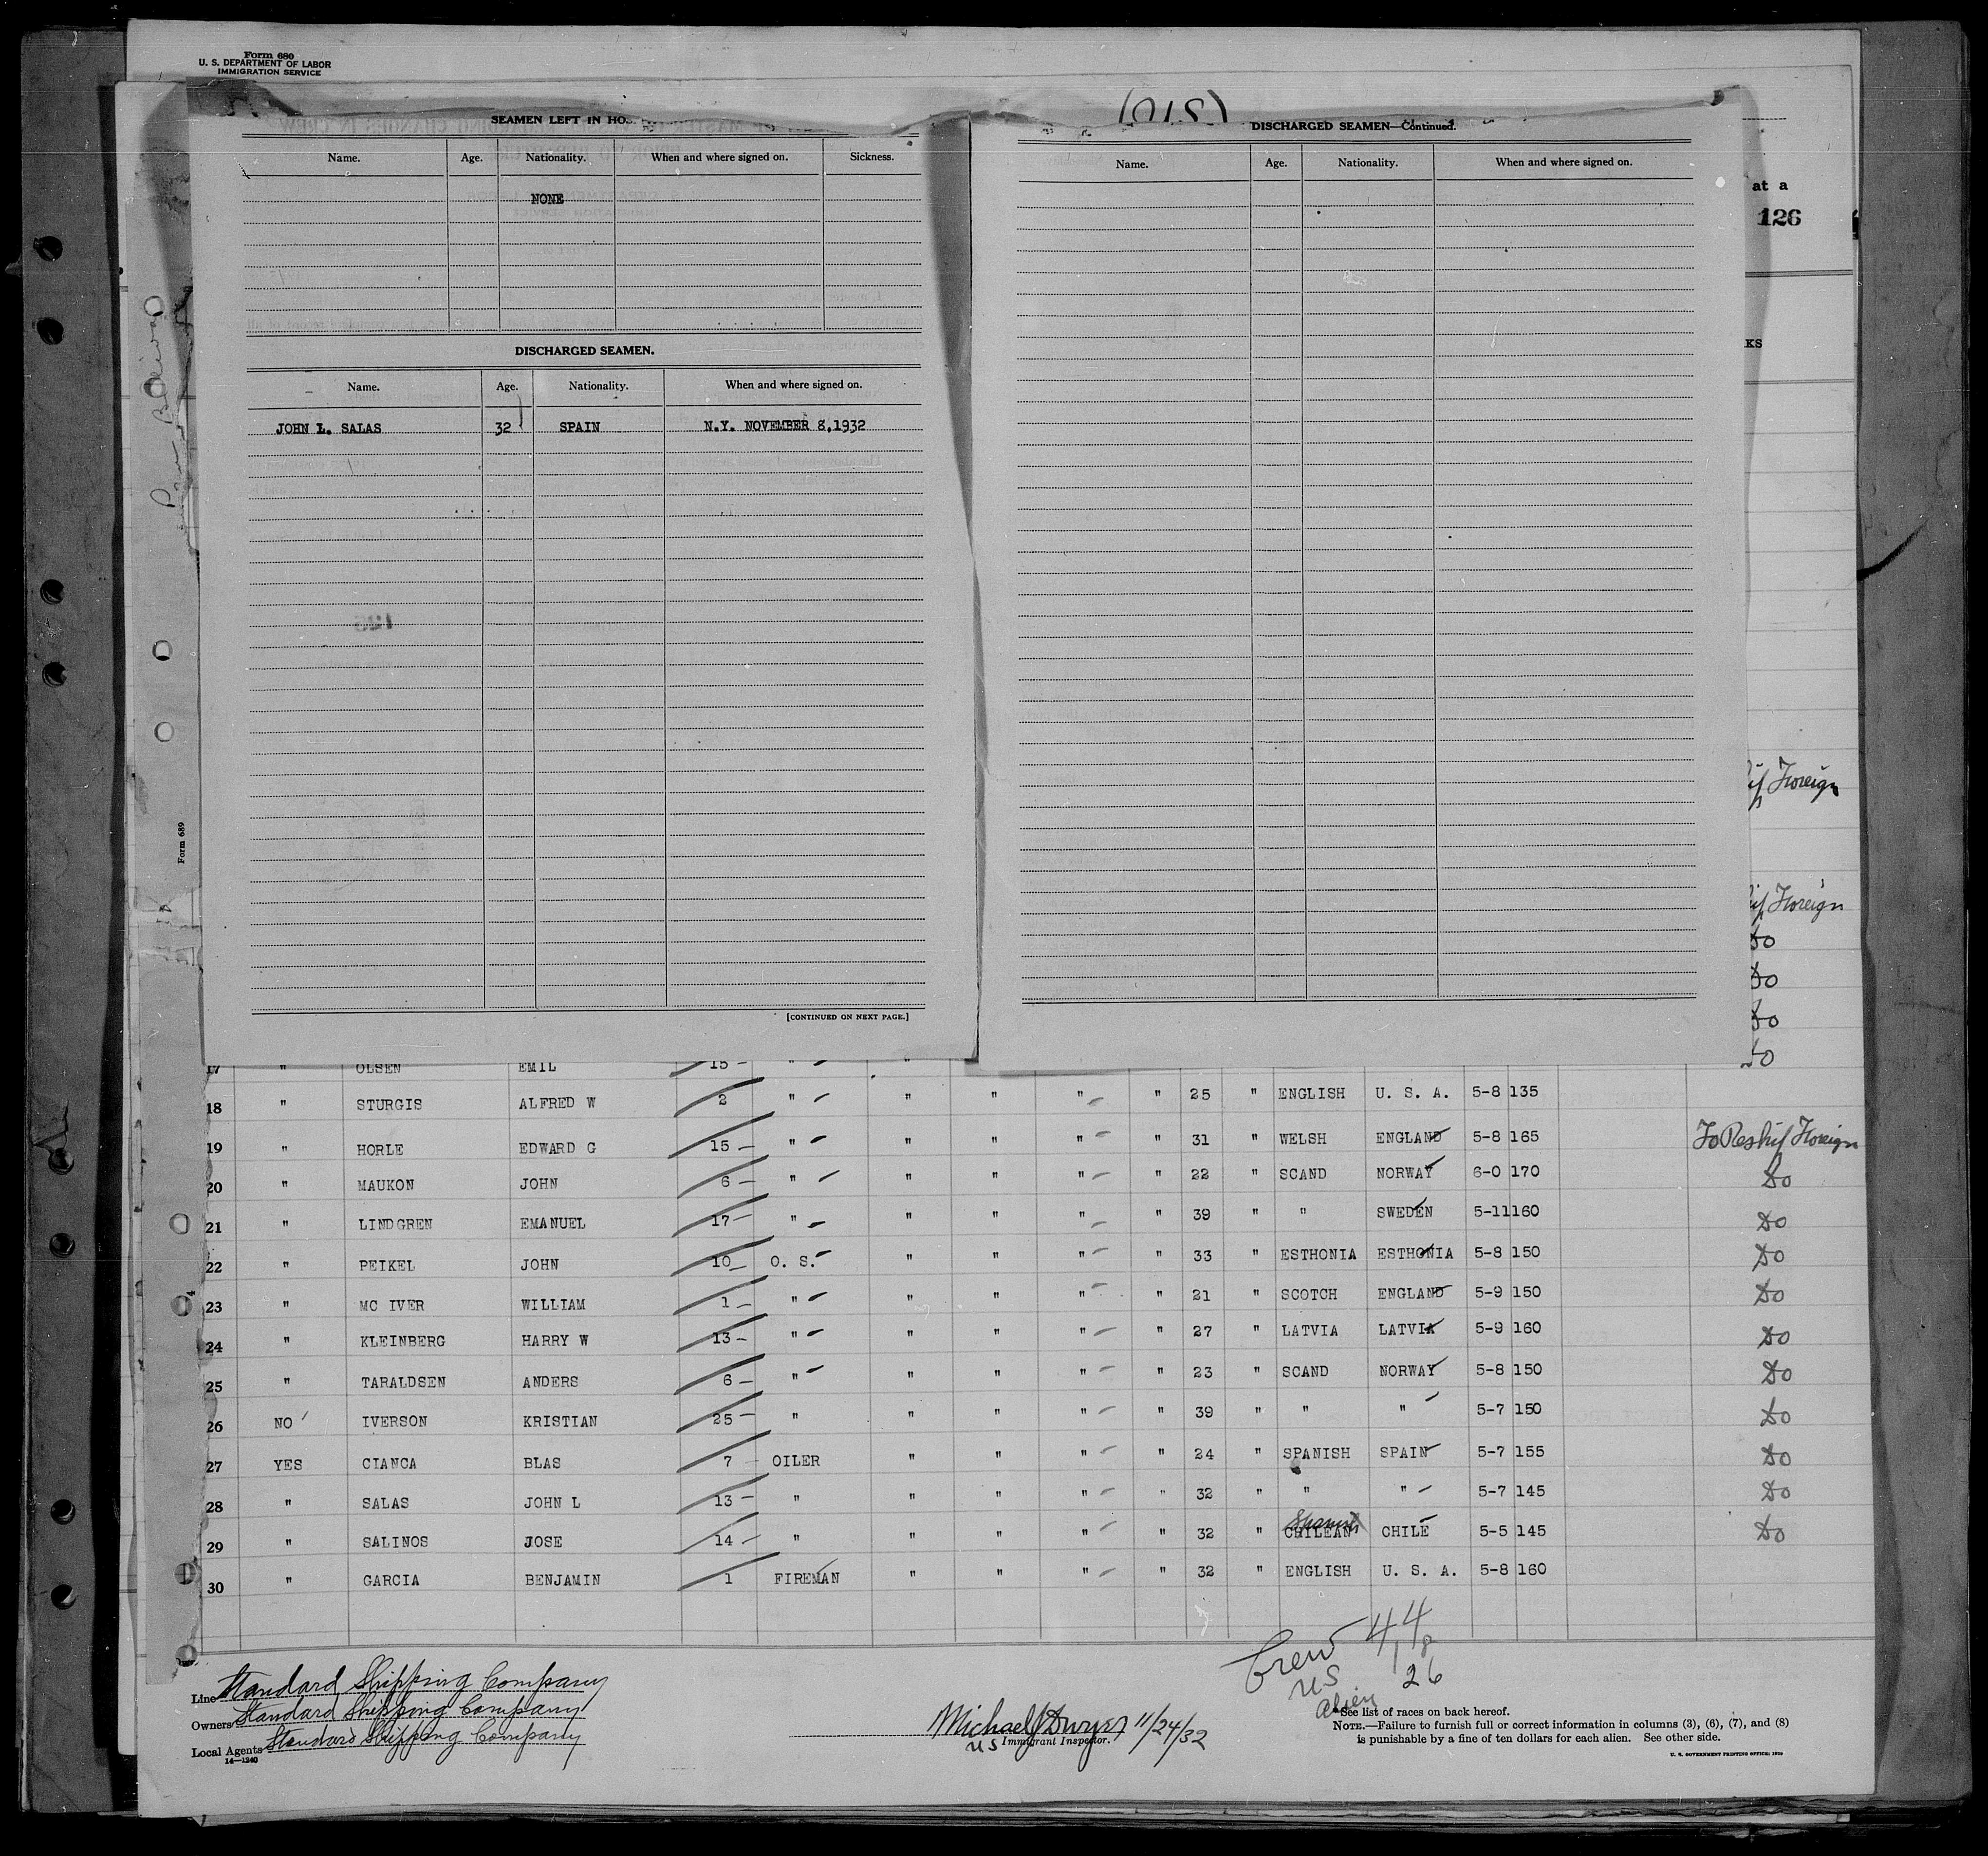 Form 680
U. S. DEPARTMENT OF LABOR
IMMIGRATION SERVICE
SEAMEN LEFT IN HOS.
Name. Age. Nationality. When and where signed on. Sickness.
NONE
DISCHARGED SEAMEN.
Name. Age. Nationality. When and where signed on.
JOHN L. SALAS 32 SPAIN N.Y. NOVEMBER 8, 1932
[CONTINUED ON NEXT PAGE.]
Form 689
DISCHARGED SEAMEN—Continued.
Name. Age. Nationality. When and where signed on.
at a
126
KS
if Foreign
if Foreign
Do
Do
Do
Do
17 " OLSEN EMIL 15 — "
18 " STURGIS ALFRED W 2 " " " " " 25 " ENGLISH U. S. A. 5-8 135
19 " HORLE EDWARD G 15 — " " " " " 31 " WELSH ENGLAND 5-8 165 To Reship Foreign
20 " MAUKON JOHN 6 — " " " " " 22 " SCAND NORWAY 6-0 170 Do
21 " LINDGREN EMANUEL 17 — " " " " " 39 " " SWEDEN 5-11 160 Do
22 " PEIKEL JOHN 10 — O. S. " " " " 33 " ESTHONIA ESTHONIA 5-8 150 Do
23 " MC IVER WILLIAM 1 — " " " " " 21 " SCOTCH ENGLAND 5-9 150 Do
24 " KLEINBERG HARRY W 13 — " " " " " 27 " LATVIA LATVIA 5-9 160 Do
25 " TARALDSEN ANDERS 6 — " " " " " 23 " SCAND NORWAY 5-8 150 Do
26 NO IVERSON KRISTIAN 25 — " " " " " 39 " " " 5-7 150 Do
27 YES CIANCA BLAS 7 — OILER " " " " 24 " SPANISH SPAIN 5-7 155 Do
28 " SALAS JOHN L 13 — " " " " " 32 " " " 5-7 145 Do
29 " SALINOS JOSE 14 — " " " " " 32 " CHILEAN Spanish CHILE 5-5 145 Do
30 " GARCIA BENJAMIN 1 FIREMAN " " " " 32 " ENGLISH U. S. A. 5-8 160
Crew 44
US 18
Alien 26
Line Standard Shipping Company
Owners Standard Shipping Company
Local Agents Standard Shipping Company
14—1240
Michael J Dwyer 11/24/32
US Immigrant Inspector.
*See list of races on back hereof.
NOTE.—Failure to furnish full or correct information in columns (3), (6), (7), and (8)
is punishable by a fine of ten dollars for each alien. See other side.
U. S. GOVERNMENT PRINTING OFFICE: 1929